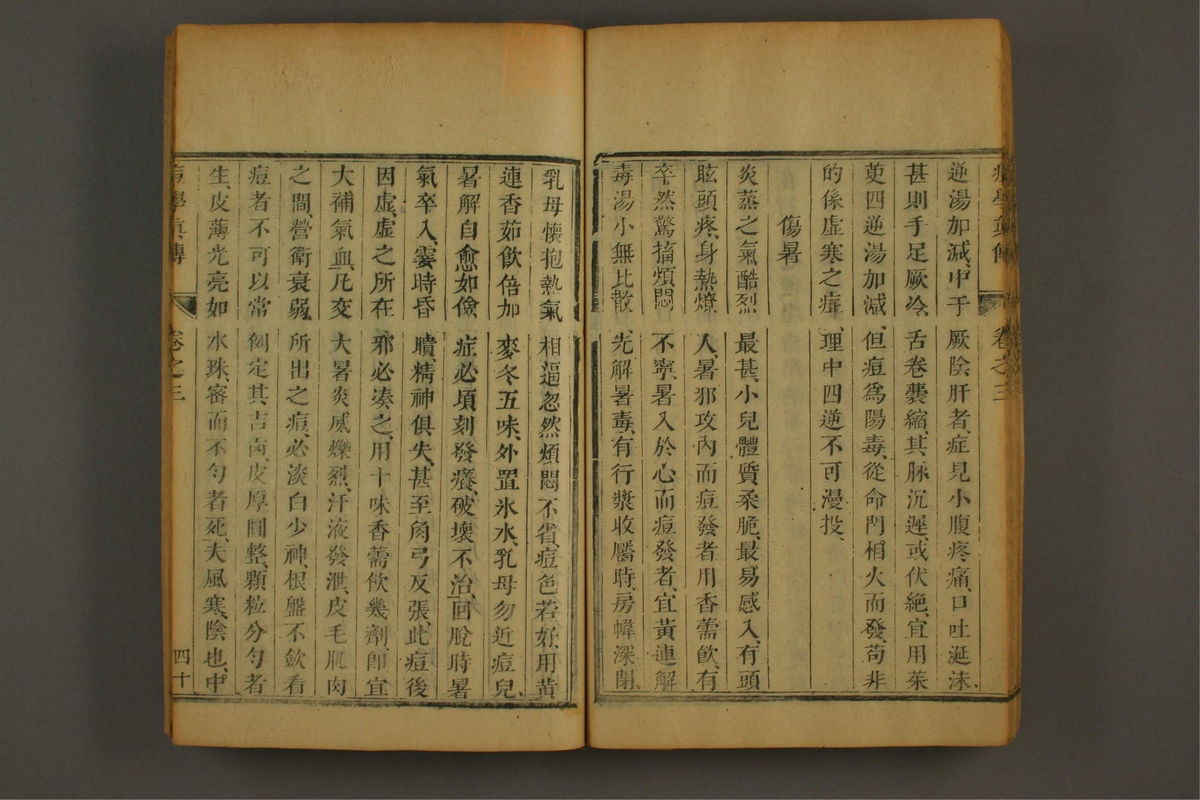 逆湯加減中于厥陰肝者症見小腹疼痛口吐涎沫
甚則手足厥冷舌卷囊縮其脉沉遲或伏絶宜用茱
萸四逆湯加減但痘爲陽毒從命門相火而發苟非
的係虛寒之症理中四逆不可漫投
傷暑
炎蒸之氣酷烈最甚小兒體質柔脆最易感入有頭
眩頭疼身熱燎人暑邪攻內而痘發者用香薷飲有
卒然驚搐煩悶不寧暑入於心而痘發者宜黃連解
毒湯小無比散先解暑毒有行漿收靨時房幃深閉
乳母懷抱熱氣相逼忽然煩悶不省痘色若好用黃
連香茹飲倍加麥冬五味外置氷水乳母勿近痘兒
暑解自愈如儉症必頃刻發癢破壞不治回脫時暑
氣卒入霎時昏瞶精神俱失甚至角弓反張此痘後
因虛虛之所在邪必湊之用十味香薷飲幾劑卽宜
大補氣血凡交大暑炎威爍烈汗液發泄皮毛肌肉
之間營衛衰弱所出之痘必淡白少神根盤不歛看
痘者不可以常例定其吉凶皮厚圓整顆粒分勻者
生皮薄光亮如水珠密而不勻者死夫風寒陰也中
痘學眞傳 卷之三 四十